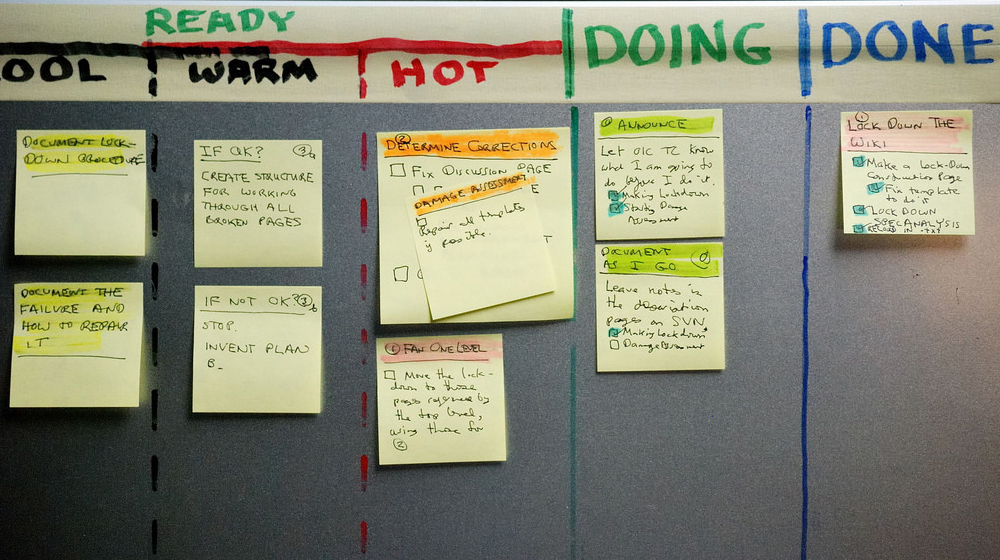 READY
OOL
WARM
HOT
DOING
DONE
DOCUMENT LOCK-
DOWN PROCEDURE
DOCUMENT THE
FAILURE AND
HOW TO REPAIR
IT
IF OK? 3a
CREATE STRUCTURE
FOR WORKING
THROUGH ALL
BROKEN PAGES
IF NOT OK? 3b
STOP.
INVENT PLAN
B_
2
DETERMINE CORRECTIONS
FIX DISCUSSION PAGE
E
DAMAGE ASSESSMENT
Repair all templates
if possible.
T
1 FAN ONE LEVEL
Move the lock-
down to those
pages referenced by
the top level,
using those for
2
0 ANNOUNCE
Let OIC T2 know
what I am going to
do before I do it.
Making Lockdown
Starting Damage
Assessment
DOCUMENT
AS I GO 0
Leave notes in
the description
pages on SVN
Making Lockdown
Damage Assessment
1
LOCK DOWN THE
WIKI
Make a Lock-Down
Construction Page
Fix template
to do it
LOCK DOWN
SPECANALYSIS
RECORD IN